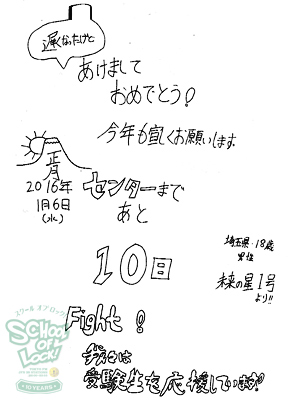 遅くなったけど
あけまして
おめでとう!
今年も宜しくお願いします
正月
2016年
1月6日
(水)
センターまで
あと
10日
埼玉県・18歳
男性
未来の星1号
より!!
Fight!
我々は
受験生を応援しています!
スクール オブ ロック!
SCHOOL
OF
LOCK!
10 YEARS